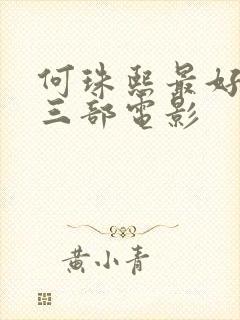 何珠熙最好
三部电影
黄小青